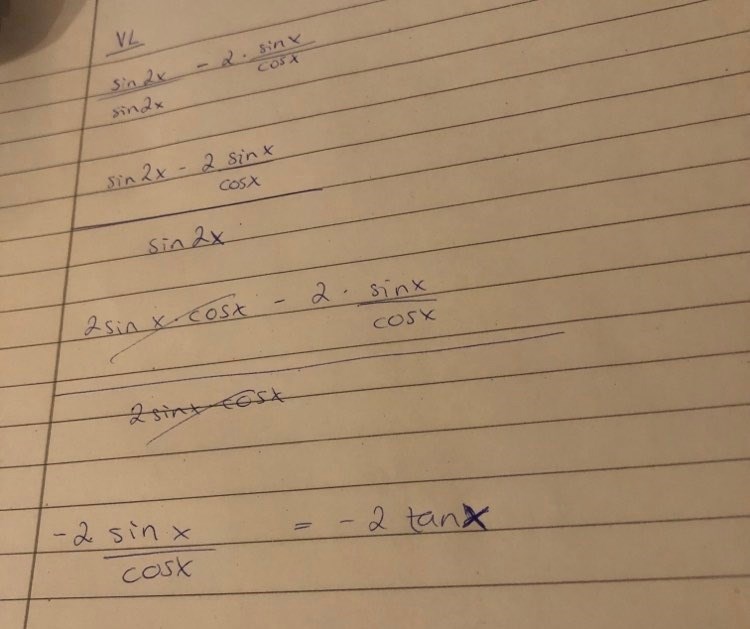 VL
sin2x/sin2x - 2 · sinx/cosx
sin2x - 2 sinx/cosx
sin2x
2sin x · cosx - 2 · sinx/cosx
2sinx cosx
-2 sin x/cosx = -2 tanx